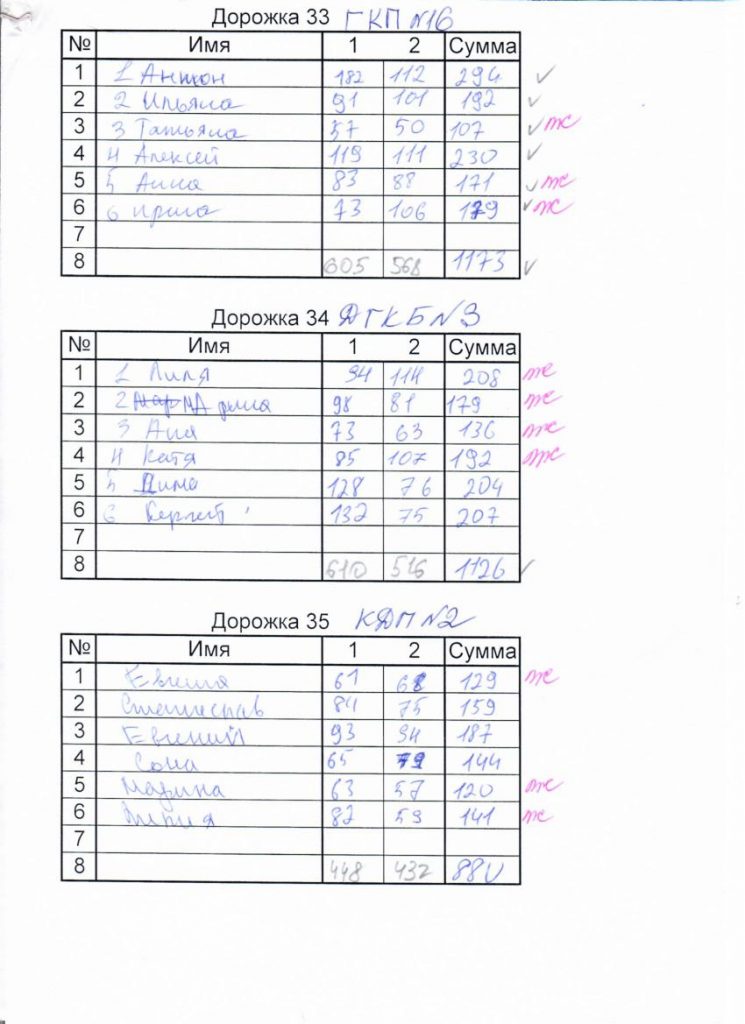 Дорожка 33 ГКП №16
№ Имя 1 2 Сумма
1 1 Антон 182 112 294
2 2 Ульяна 91 101 192
3 3 Татьяна 57 50 107 ж
4 4 Алексей 119 111 230
5 5 Анна 83 88 171 ж
6 6 Ирина 73 106 179 ж
7
8 605 568 1173
Дорожка 34 ДГКБ №3
№ Имя 1 2 Сумма
1 1 Лиля 94 114 208 ж
2 2 Марина 98 81 179 ж
3 3 Аня 73 63 136 ж
4 4 Катя 85 107 192 ж
5 5 Дима 128 76 204
6 6 132 75 207
7
8 610 516 1126
Дорожка 35 КДП №2
№ Имя 1 2 Сумма
1 Евгения 61 68 129 ж
2 Станислав 84 75 159
3 Евгений 93 94 187
4 65 79 144
5 Марина 63 57 120 ж
6 Лилия 82 59 141 ж
7
8 448 432 880